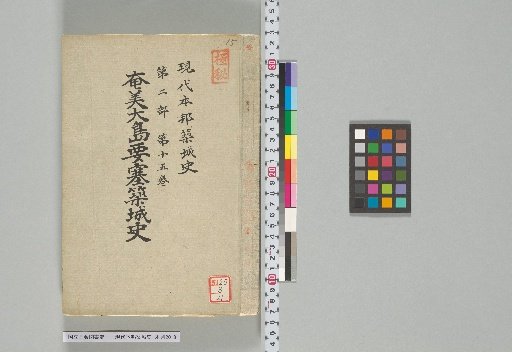 15
極秘
現代本邦築城史
第二部 第十五巻
奄美大島要塞築城史